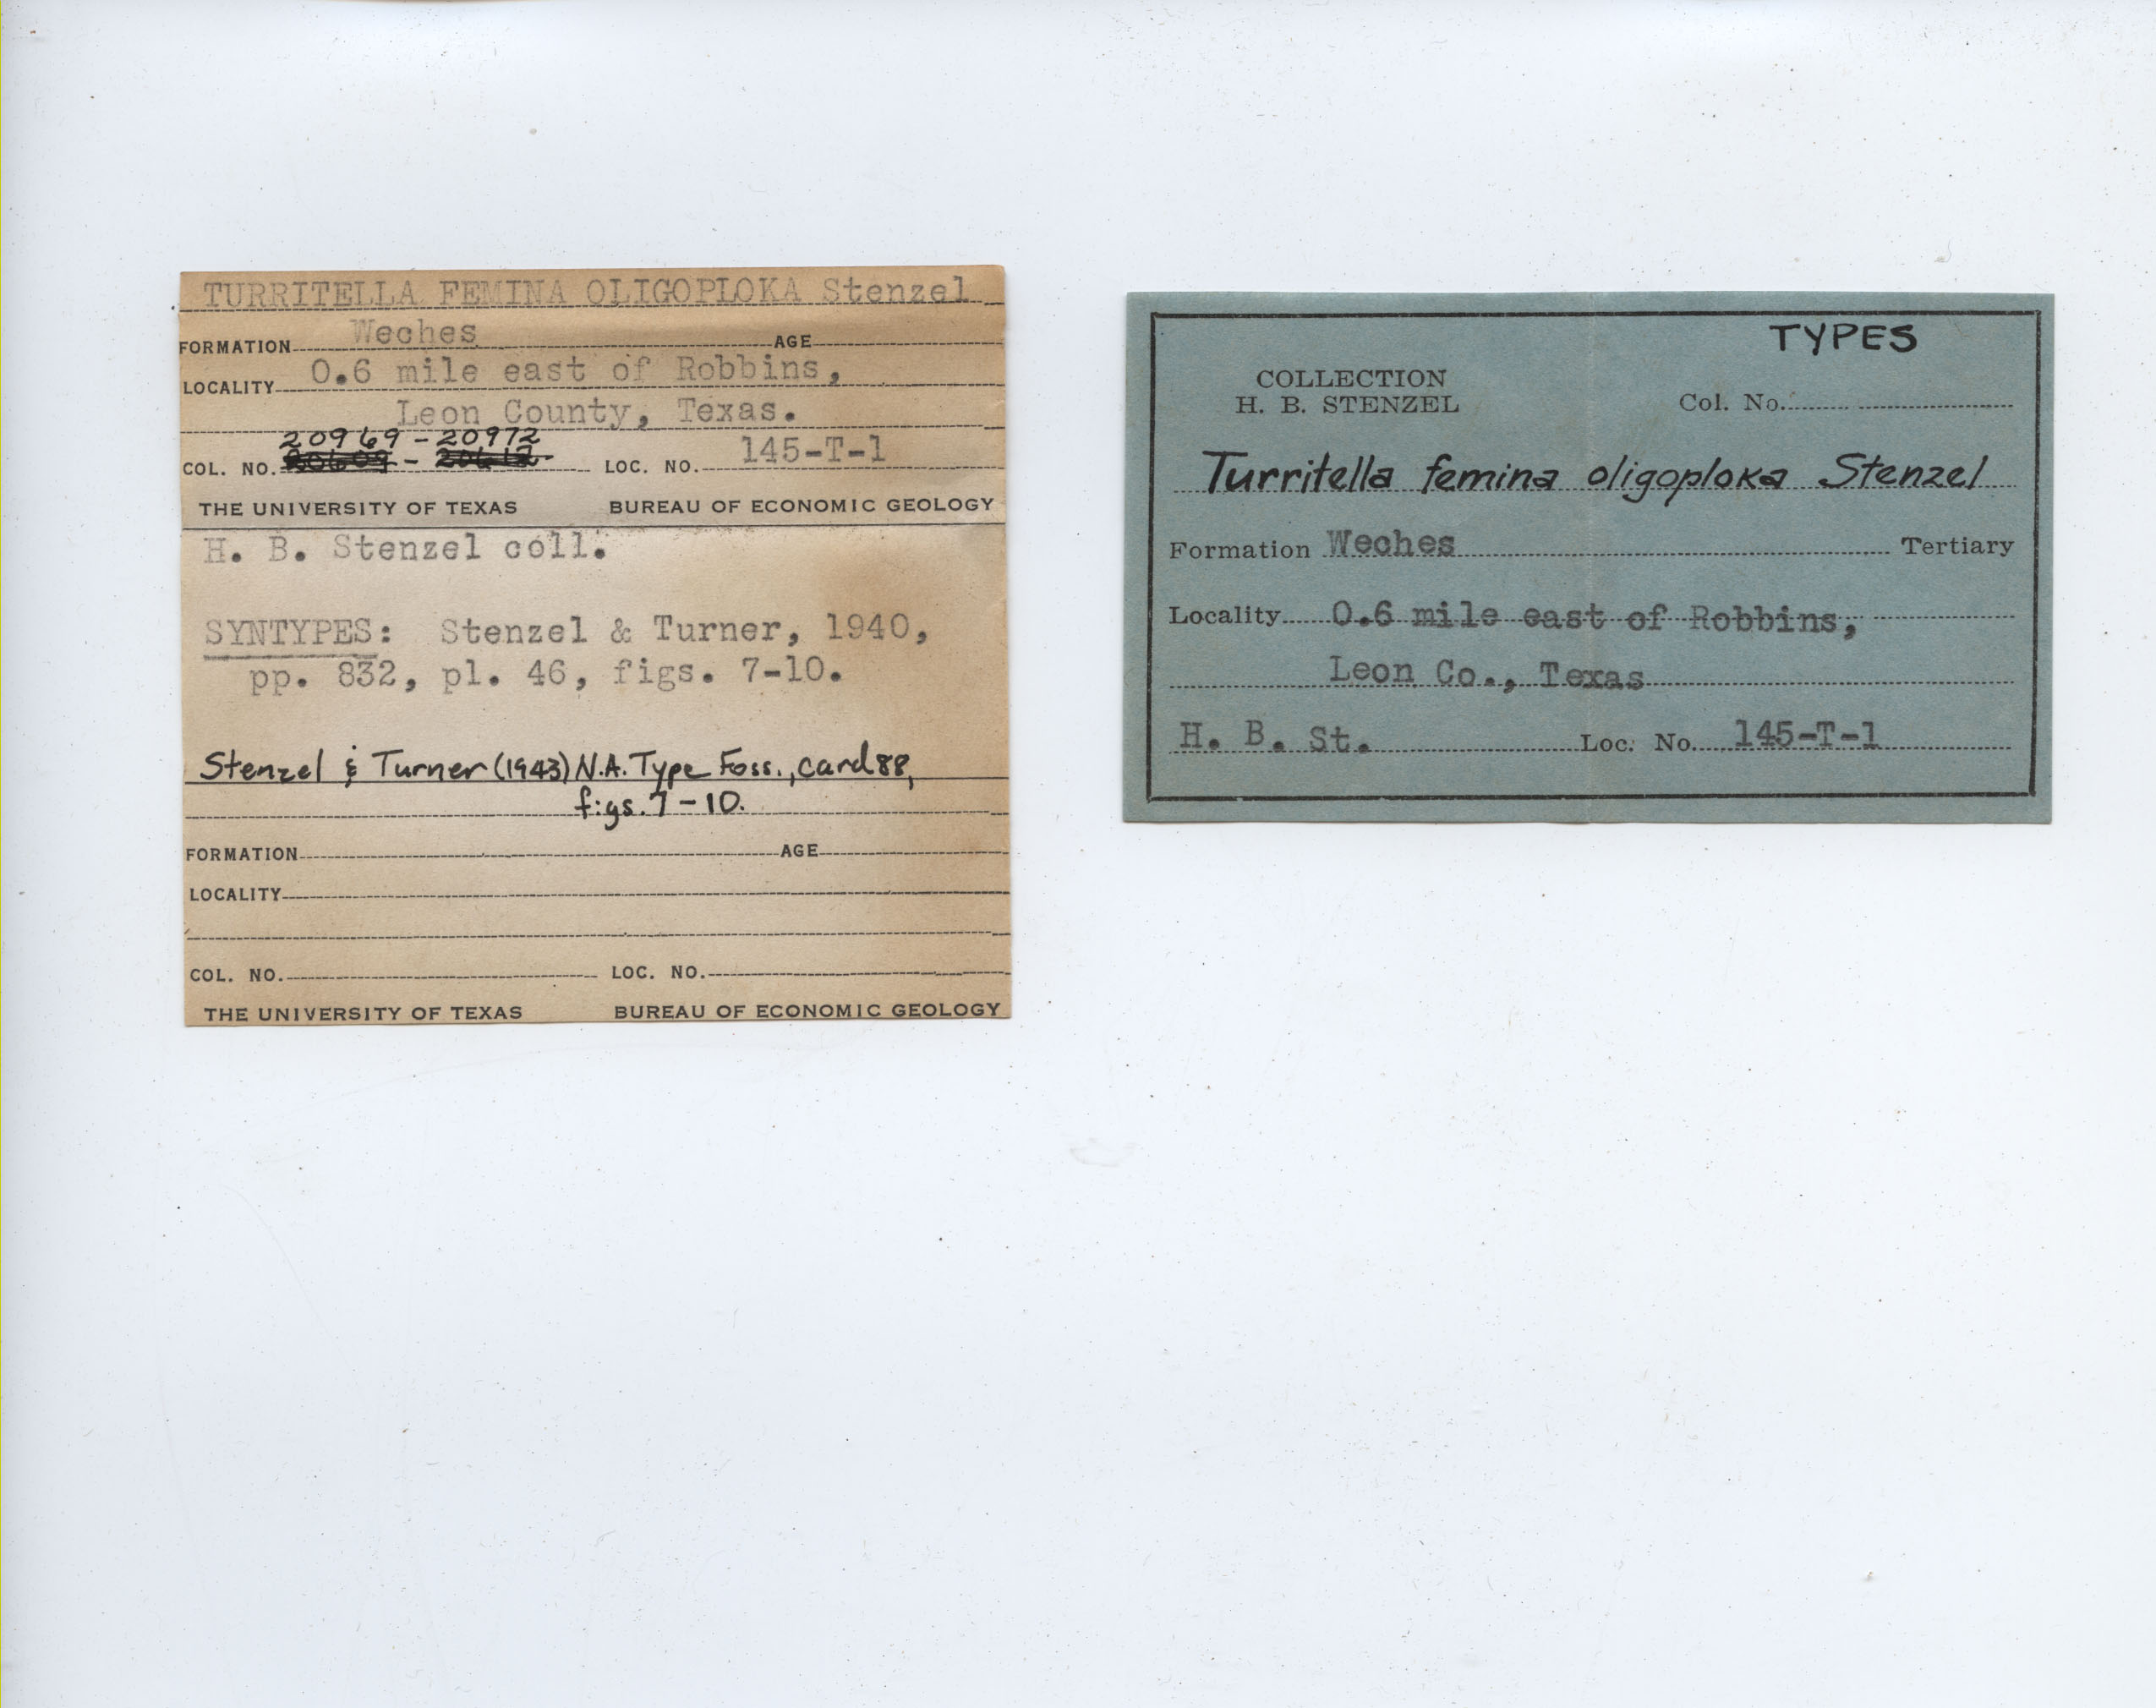 TURRITELLA FEMINA OLIGOPLOKA Stenzel
FORMATION Weches AGE
LOCALITY 0.6 mile east of Robbins,
Leon County, Texas.
20969-20972
COL. NO. 20609 - 20612 LOC. NO. 145-T-1
THE UNIVERSITY OF TEXAS BUREAU OF ECONOMIC GEOLOGY
H. B. Stenzel coll.
SYNTYPES: Stenzel & Turner, 1940,
pp. 832, pl. 46, figs. 7-10.
Stenzel & Turner (1943) N.A. Type Foss., card 88,
figs. 7-10.
FORMATION AGE
LOCALITY
COL. NO. LOC. NO.
THE UNIVERSITY OF TEXAS BUREAU OF ECONOMIC GEOLOGY
TYPES
COLLECTION
H. B. STENZEL Col. No.
Turritella femina oligoploka Stenzel
Formation Weches Tertiary
Locality 0.6 mile east of Robbins,
Leon Co., Texas
H. B. St. Loc. No. 145-T-1